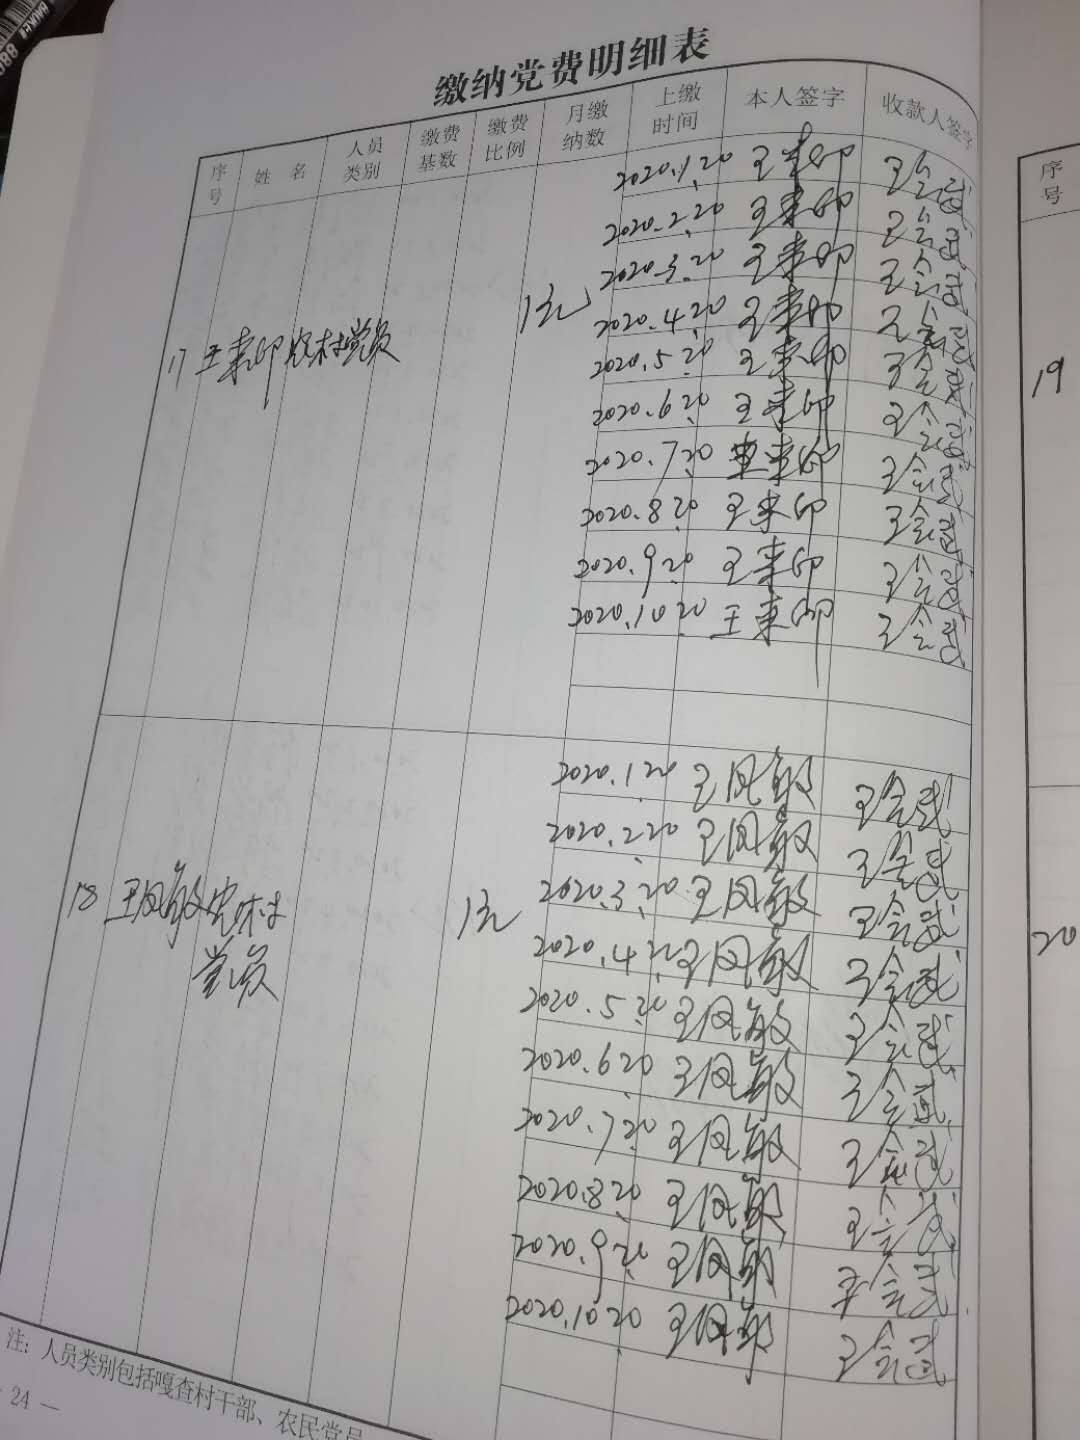 缴纳党费明细表
序号 姓 名 人员类别 缴费基数 缴费比例 月缴纳数 上缴时间 本人签字 收款人签字
17 王来印 农村党员 1元
2020.1.20 王来印 王会武
2020.2.20 王来印 王会武
2020.3.20 王来印 王会武
2020.4.20 王来印 王会武
2020.5.20 王来印 王会武
2020.6.20 王来印 王会武
2020.7.20 王来印 王会武
2020.8.20 王来印 王会武
2020.9.20 王来印 王会武
2020.10.20 王来印 王会武
18 王凤敏 农村党员 1元
2020.1.20 王凤敏 王会武
2020.2.20 王凤敏 王会武
2020.3.20 王凤敏 王会武
2020.4.20 王凤敏 王会武
2020.5.20 王凤敏 王会武
2020.6.20 王凤敏 王会武
2020.7.20 王凤敏 王会武
2020.8.20 王凤敏 王会武
2020.9.20 王凤敏 王会武
2020.10.20 王凤敏 王会武
注：人员类别包括嘎查村干部、农民党员
24 —
序号
19
20